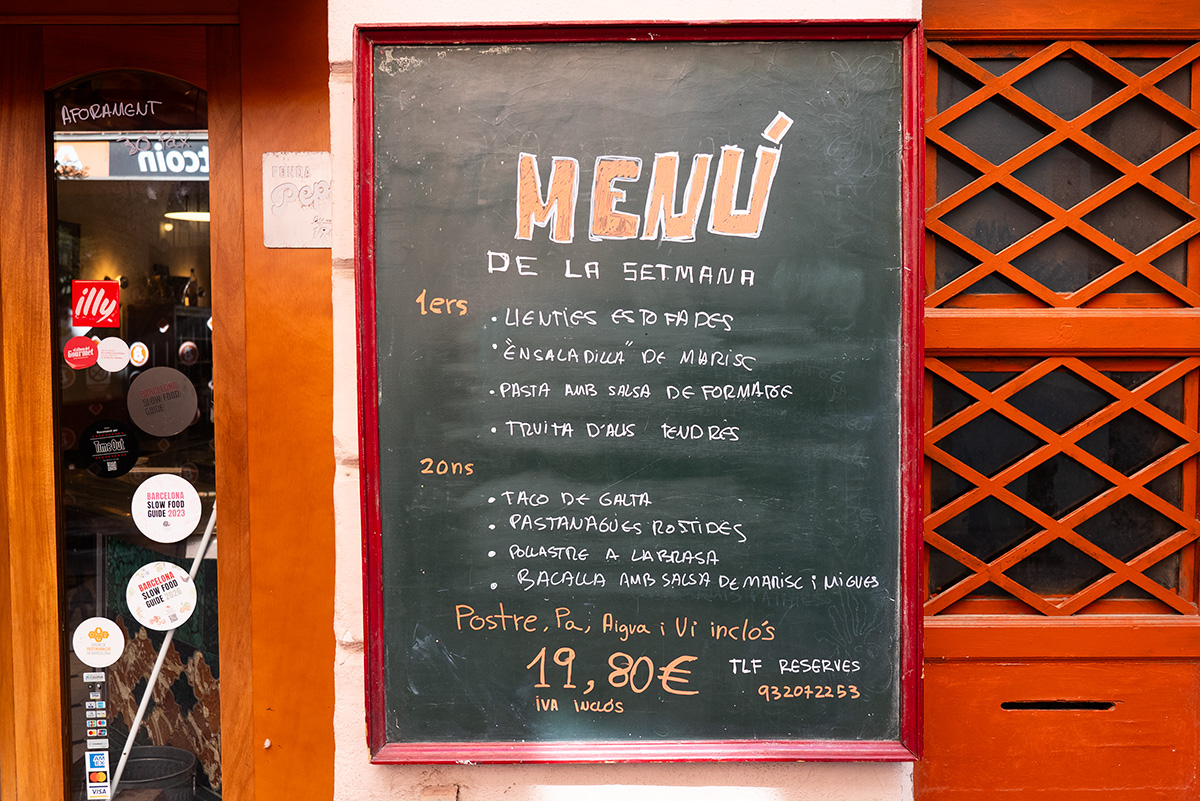 AFORAMENT
30 Pax
tcoin
illy
Gourmet
BARCELONA
SLOW FOOD
GUIDE
TimeOut
BARCELONA
SLOW FOOD
GUIDE 2023
BARCELONA
SLOW FOOD
GUIDE 2026
AMEX
VISA
MENÚ
DE LA SETMANA
1ers
• LLENTIES ESTOFADES
• "ENSALADILLA" DE MARISC
• PASTA AMB SALSA DE FORMATGE
• TRUITA D'ALLS TENDRES
2ons
• TACO DE GALTA
• PASTANAGUES ROSTIDES
• POLLASTRE A LA BRASA
• BACALLA AMB SALSA DE MARISC i MIGUES
Postre, Pa, Aigua i Vi inclós
19,80€
IVA INCLÓS
TLF RESERVES
932072253